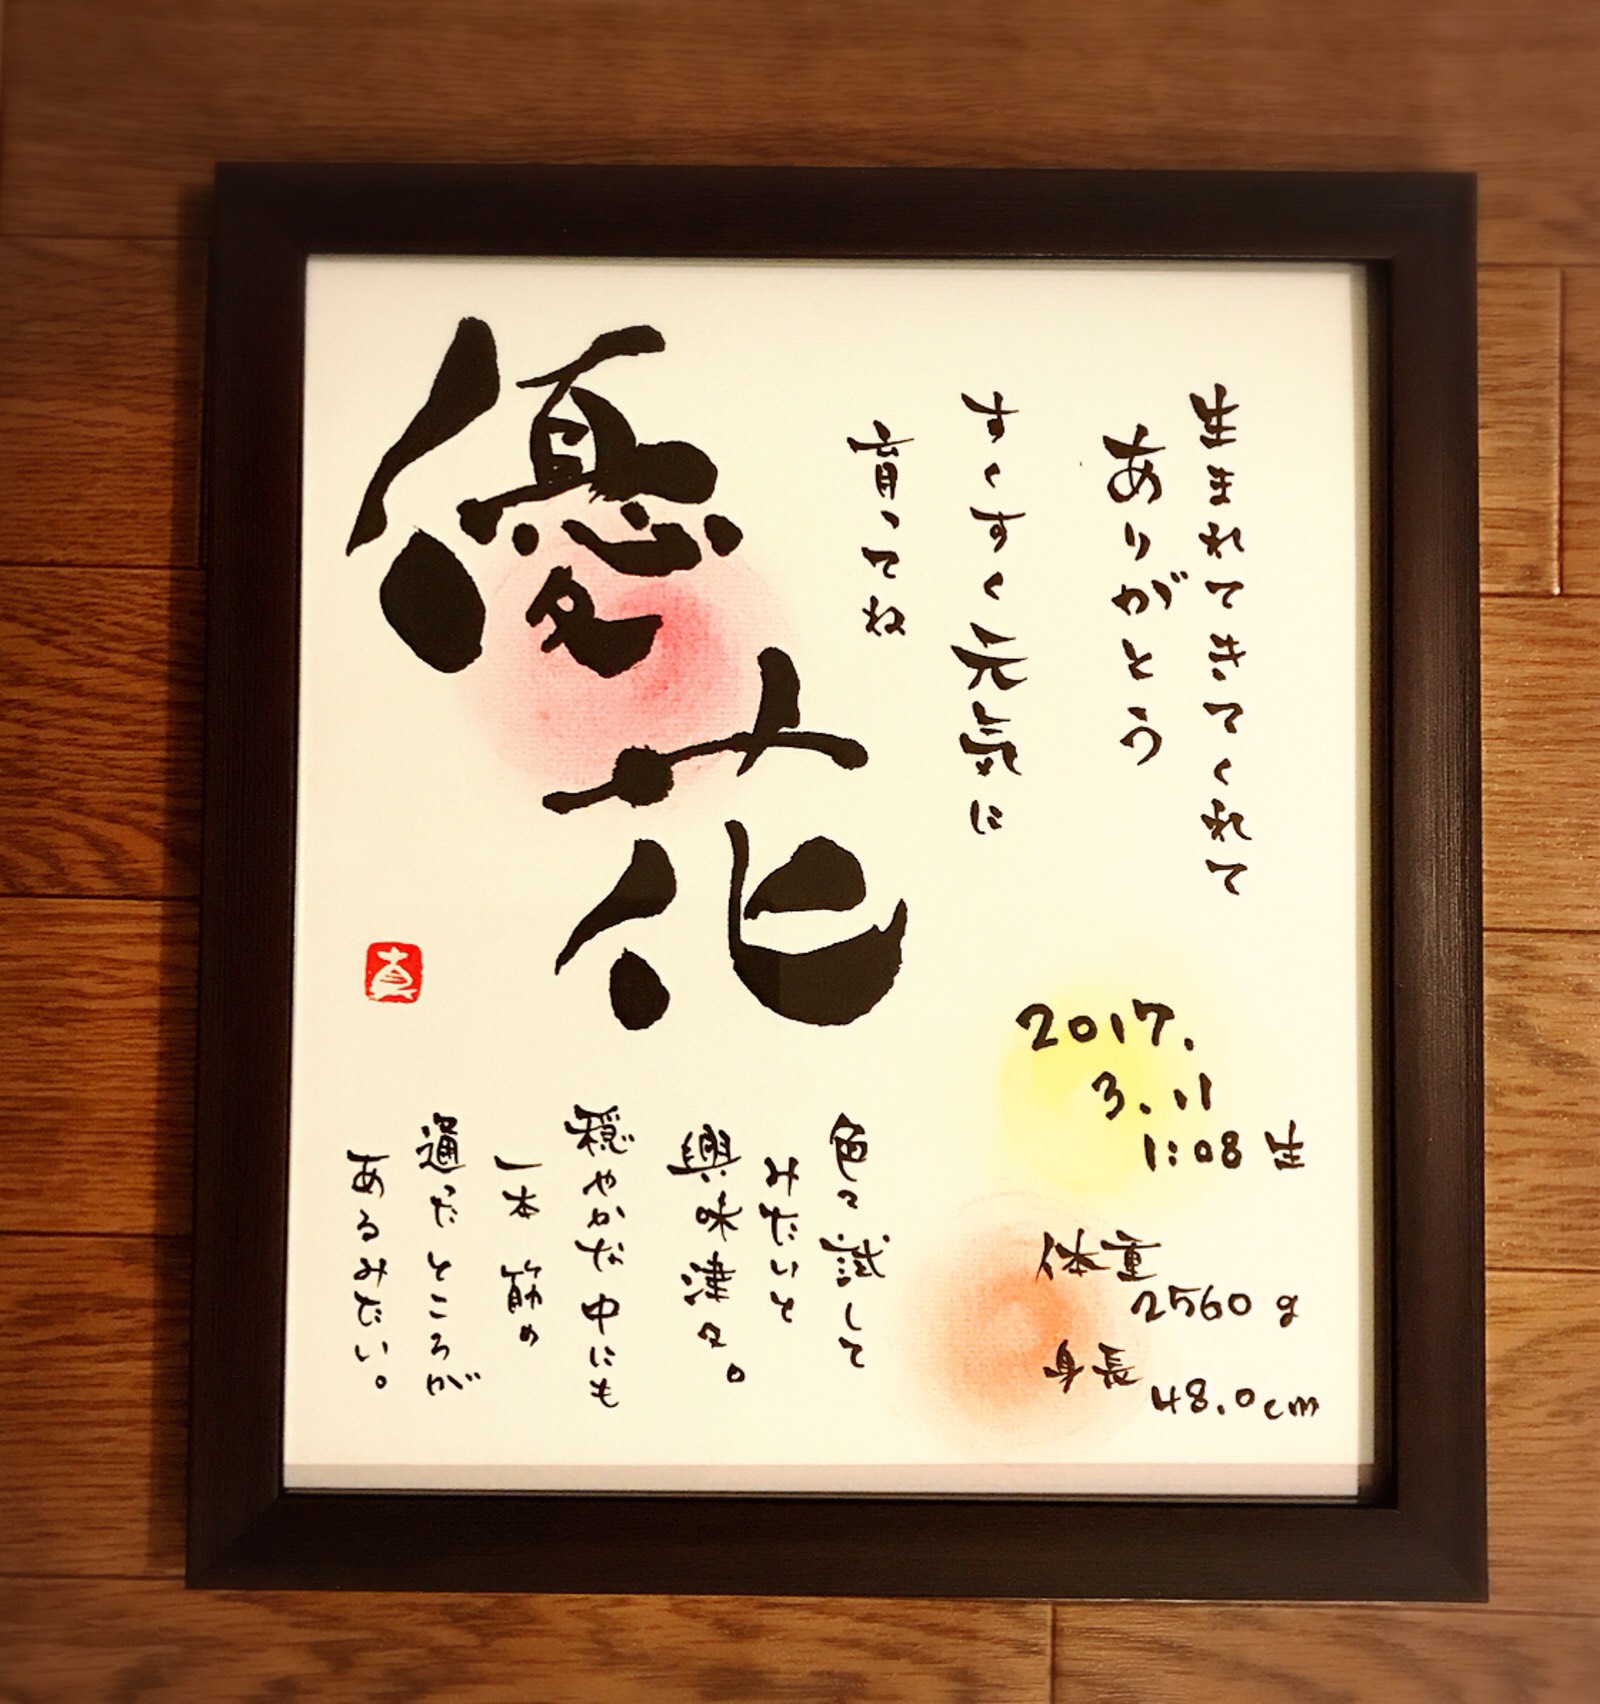 生まれてきてくれて
ありがとう
すくすく元気に
育ってね
優花
2017.
3.11
1:08 生
体重
2560 g
身長
48.0cm
色々試して
みたいと
興味津々。
穏やかな中にも
一本 筋の
通ったところが
あるみたい。